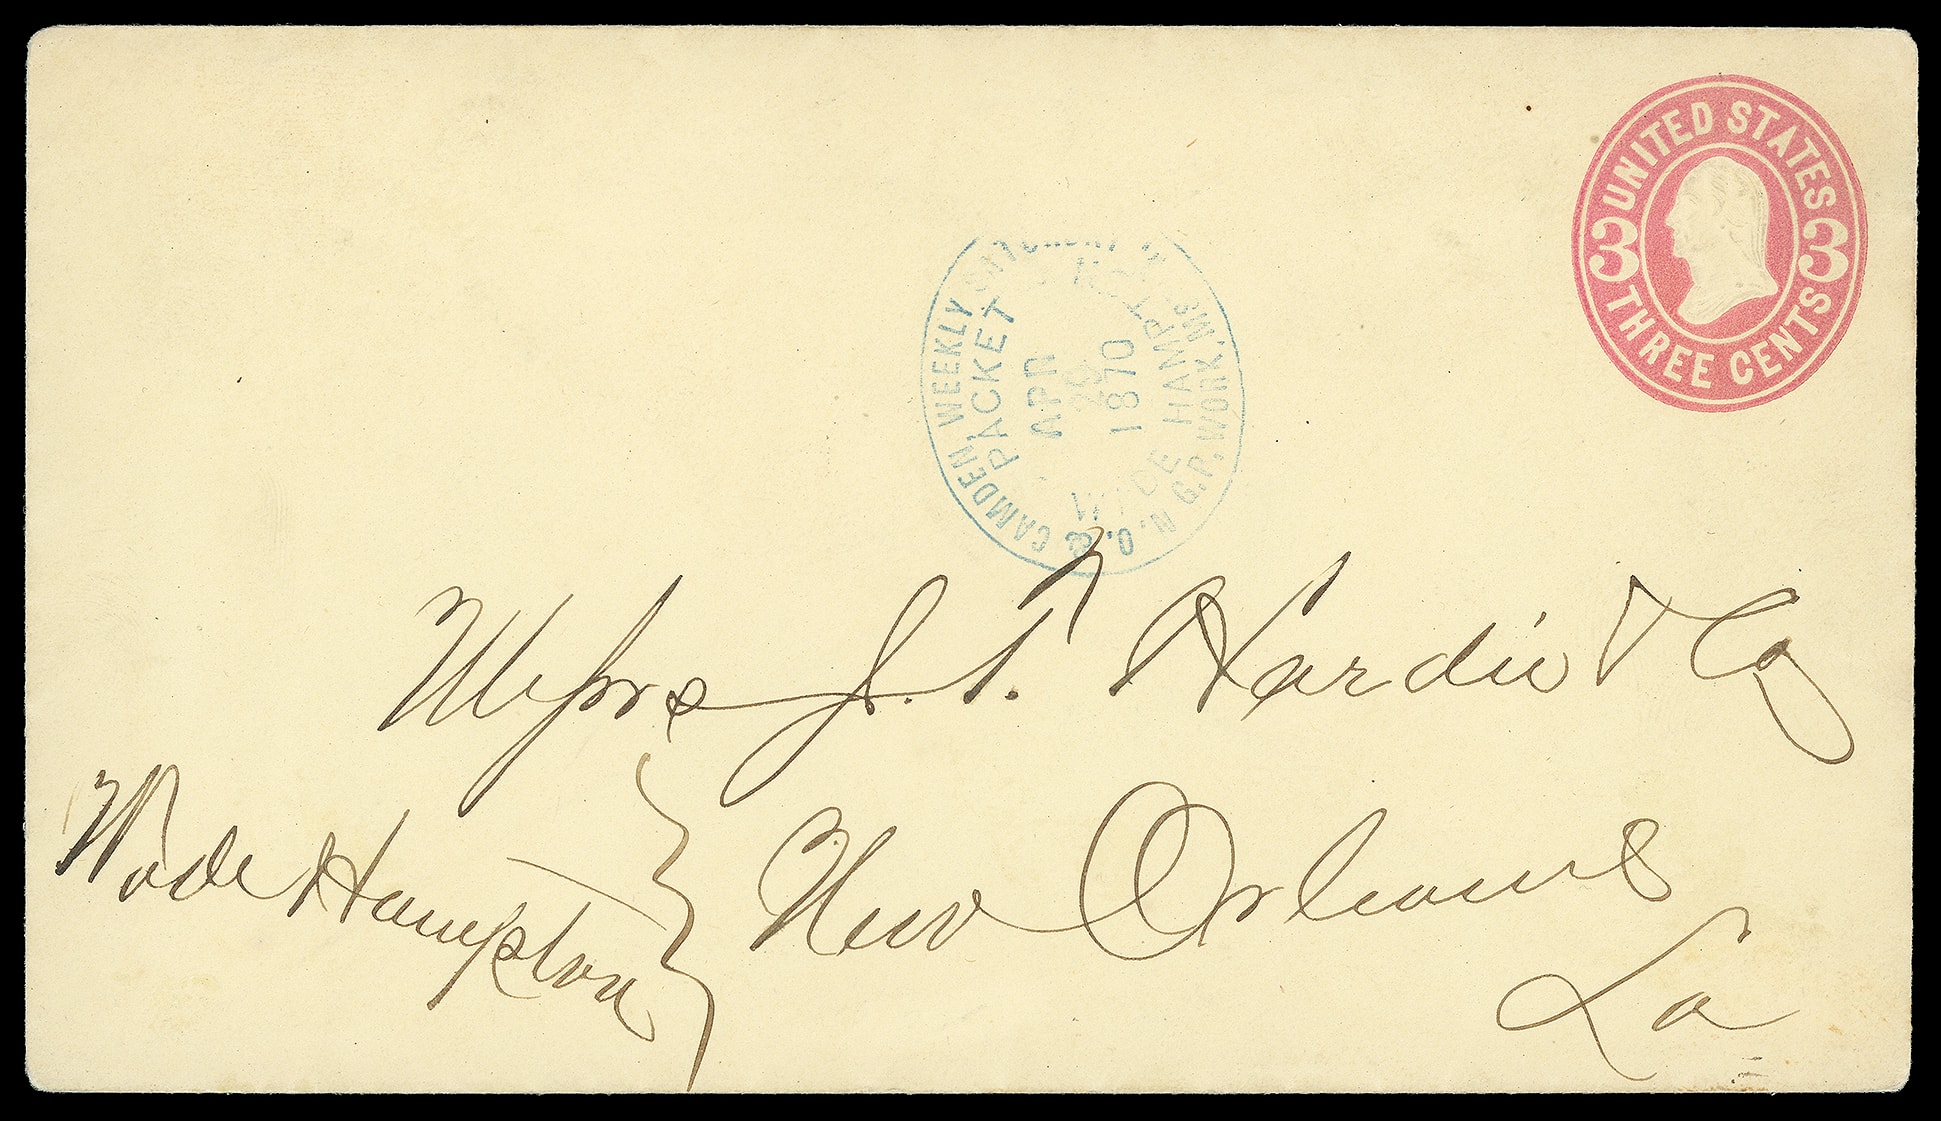 UNITED STATES
3 3
THREE CENTS
N.O. & CAMDEN, WEEKLY SATURDAY
PACKET
APR
1870
WADE HAMPT
G.P. WORK, Ms
Messrs J. T. Hardie & Co
Wade Hampton
New Orleans
La